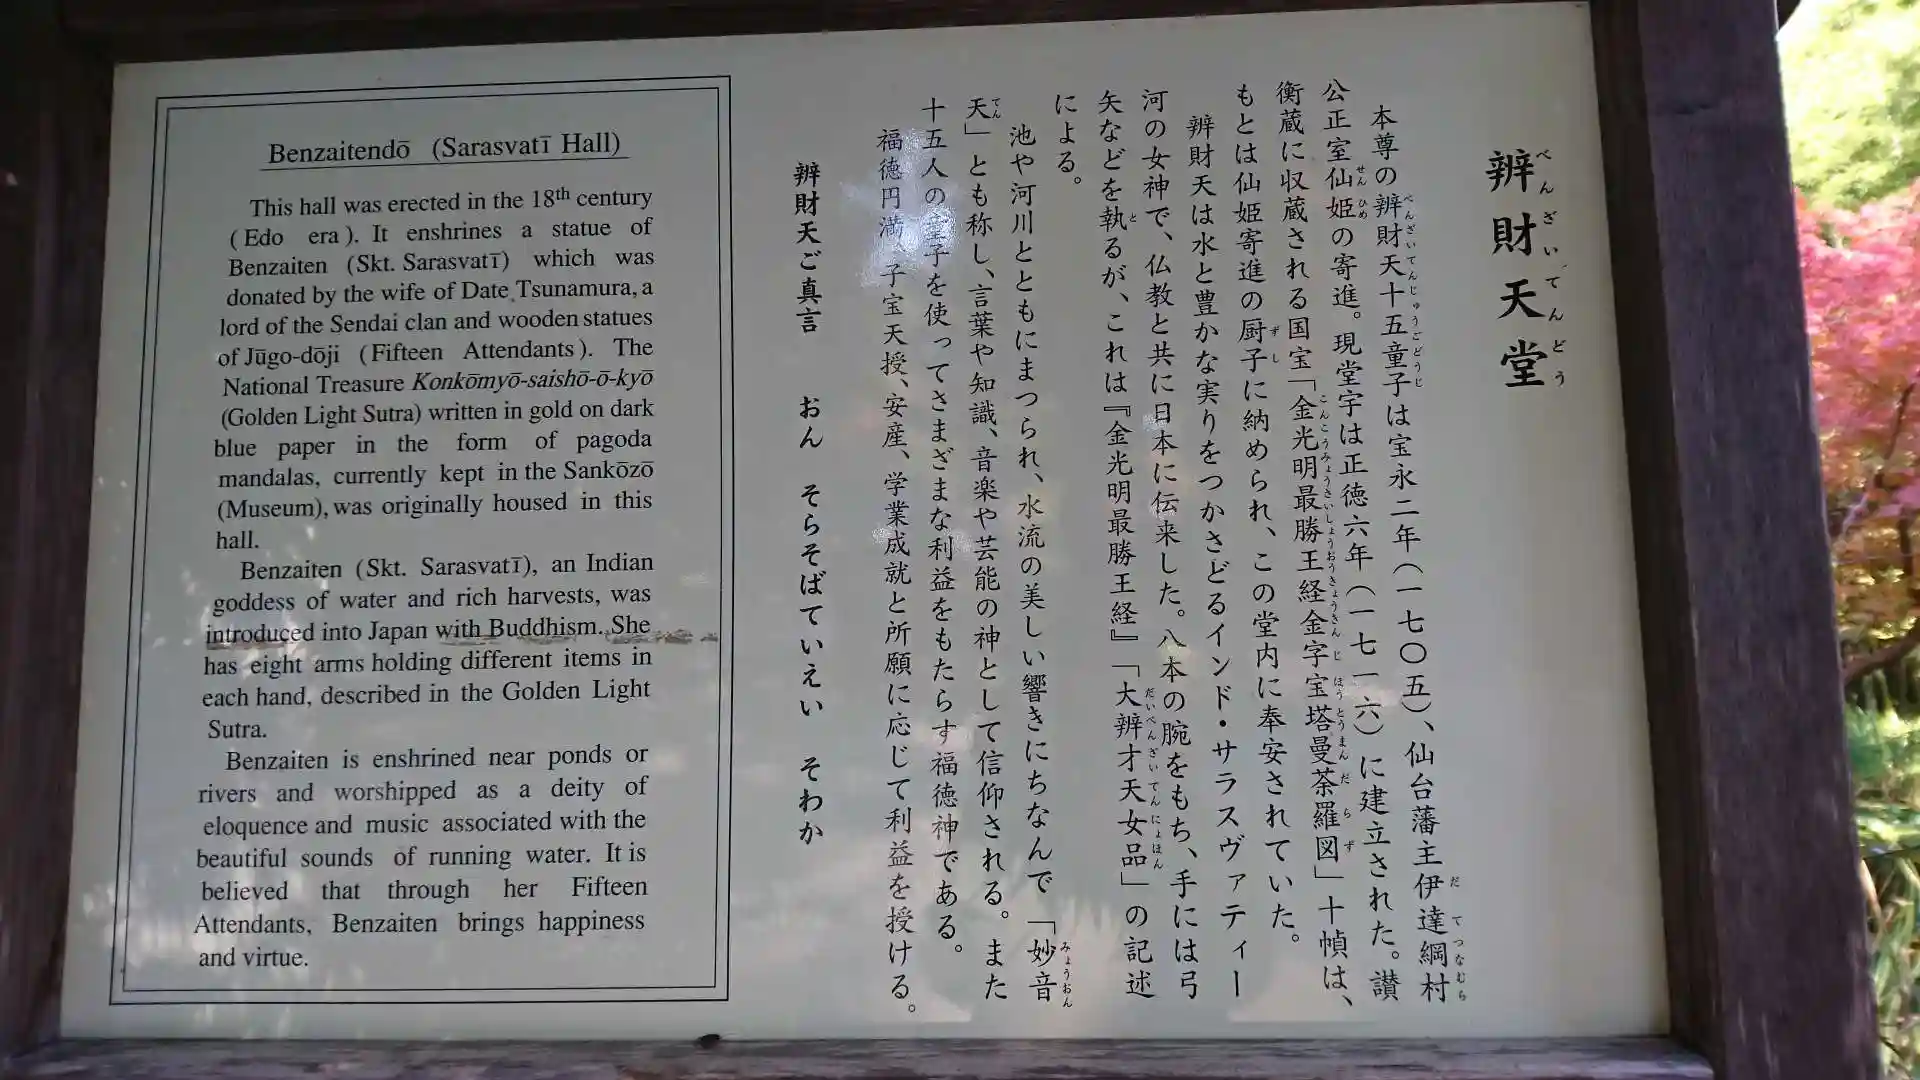 Benzaitendō (Sarasvatī Hall)
This hall was erected in the 18th century
(Edo era). It enshrines a statue of
Benzaiten (Skt. Sarasvatī) which was
donated by the wife of Date Tsunamura, a
lord of the Sendai clan and wooden statues
of Jūgo-dōji (Fifteen Attendants). The
National Treasure Konkōmyō-saishō-ō-kyō
(Golden Light Sutra) written in gold on dark
blue paper in the form of pagoda
mandalas, currently kept in the Sankōzō
(Museum), was originally housed in this
hall.
Benzaiten (Skt. Sarasvatī), an Indian
goddess of water and rich harvests, was
introduced into Japan with Buddhism. She
has eight arms holding different items in
each hand, described in the Golden Light
Sutra.
Benzaiten is enshrined near ponds or
rivers and worshipped as a deity of
eloquence and music associated with the
beautiful sounds of running water. It is
believed that through her Fifteen
Attendants, Benzaiten brings happiness
and virtue.
辨財天堂
べんざいてんどう
本尊の辨財天十五童子は宝永二年(一七〇五)、仙台藩主伊達綱村
べんざいてんじゅうごどうじ
だてつなむら
公正室仙姫の寄進。現堂宇は正徳六年(一七一六)に建立された。讃
せんひめ
衡蔵に収蔵される国宝「金光明最勝王経金字宝塔曼荼羅図」十幀は、
こんこうみょうさいしょうおうきょうきんじほうとうまんだらず
もとは仙姫寄進の厨子に納められ、この堂内に奉安されていた。
ずし
辨財天は水と豊かな実りをつかさどるインド・サラスヴァティー
河の女神で、仏教と共に日本に伝来した。八本の腕をもち、手には弓
矢などを執るが、これは『金光明最勝王経』「大辨才天女品」の記述
と
だいべんざいてんにょほん
による。
池や河川とともにまつられ、水流の美しい響きにちなんで「妙音
みょうおん
天」とも称し、言葉や知識、音楽や芸能の神として信仰される。また
てん
十五人の童子を使ってさまざまな利益をもたらす福徳神である。
福徳円満、子宝天授、安産、学業成就と所願に応じて利益を授ける。
辨財天ご真言 おん そらそばていえい そわか